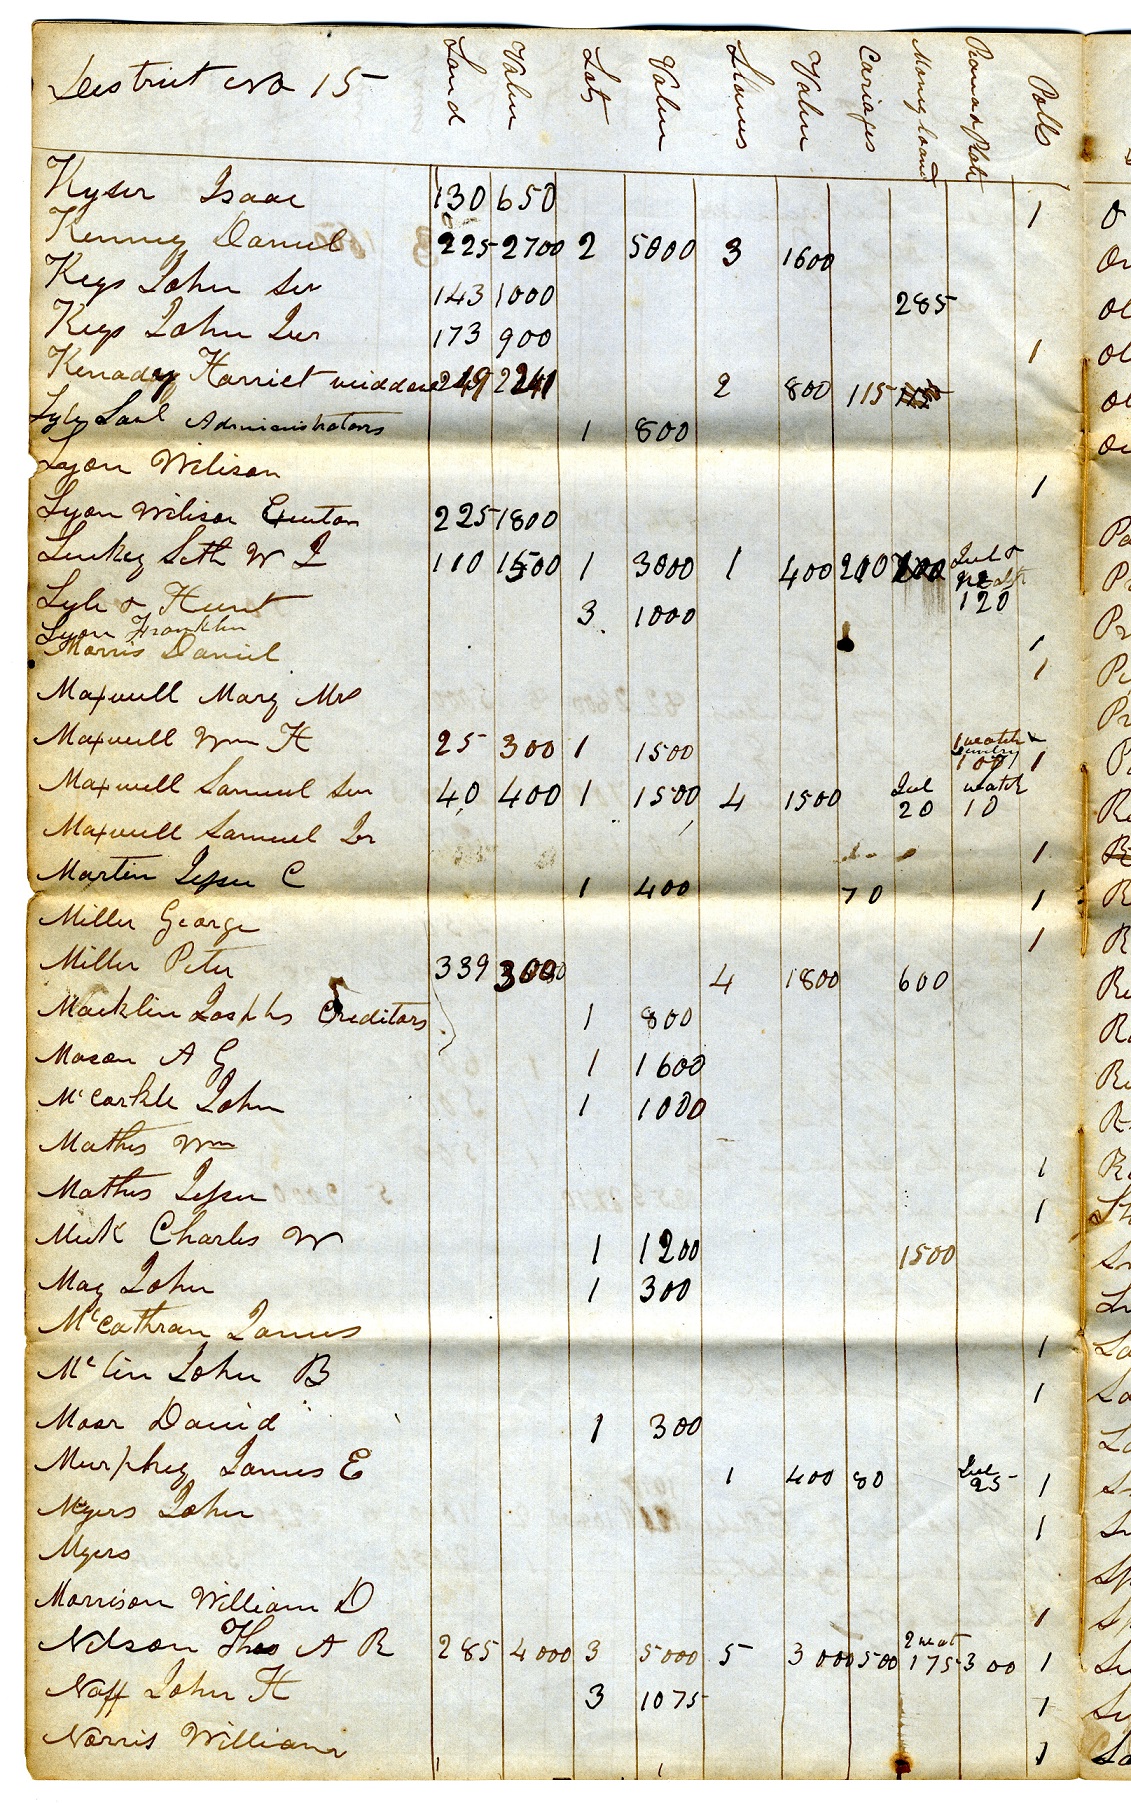 District No 15 Land Value Lots Value Slaves Value Cariages Money loand Pianos & Plate Polls
Kyser Isaac 130 650 1
Kenney Daniel 225 2700 2 5000 3 1600
Keys John Snr 143 1000 285
Keys John Jur 173 900 1
Kenaday Harriet widdow 249 2241 2 800 115
Lyle Saml Administrators 1 800
Lyon Wilison 1
Lyon Wilison Exutor 225 1800
Luckey Seth W J 110 1500 1 3000 1 400 200 Jul &
120
Lyle & Hunt 3 1000
Lyon Franklin 1
Morris Daniel 1
Maxwell Mary Mrs
Maxwell Wm H 25 300 1 1500 1 watch &
100 1
Maxwell Samuel Snr 40 400 1 1500 4 1500 Jul 20 watch 10
Maxwell Samuel Jr 1
Martin Jesse C 1 400 70 1
Miller George 1
Miller Peter 339 3000 4 1800 600
Macklin Josephs Creditors 1 800
Mason A G 1 1600
McCorkle John 1 1000
Mathes Wm 1
Mathes Jesse 1
Meek Charles W 1 1200 1500
May John 1 300
McCathran James 1
McLin John B 1
Moor David 1 300
Murphey James E 1 400 80 Jul 25 1
Myers John 1
Myers
Morrison William D 1
Nelson Thos A R 285 4000 3 5000 5 3000 500 2 wat 175 300 1
Naff John H 3 1075 1
Norris William 1